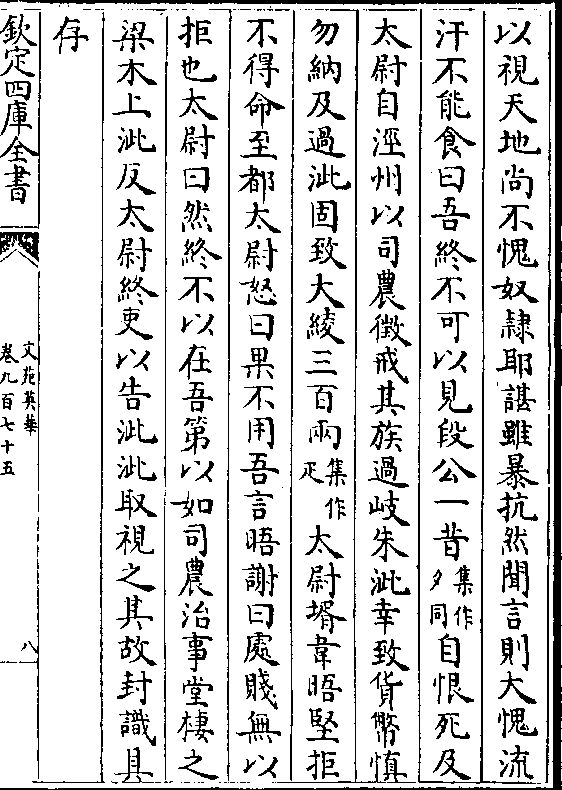 以視天地尚不愧奴隷耶諶雖暴抗然聞言則大愧流
汗不能食曰吾終不可以見段公一昔集作夕同自恨死及
太尉自涇州以司農徴戒其族過岐朱泚幸致貨幣慎
勿納及過泚固致大綾三百兩集作疋太尉壻韋晤堅拒
不得命至都太尉怒曰果不用吾言晤謝曰處賤無以
拒也太尉曰然終不以在吾第以如司農治事堂棲之
梁木上泚反太尉終吏以告泚泚取視之其故封識具
存
欽定四庫全書
文苑英華
卷九百七十五
八